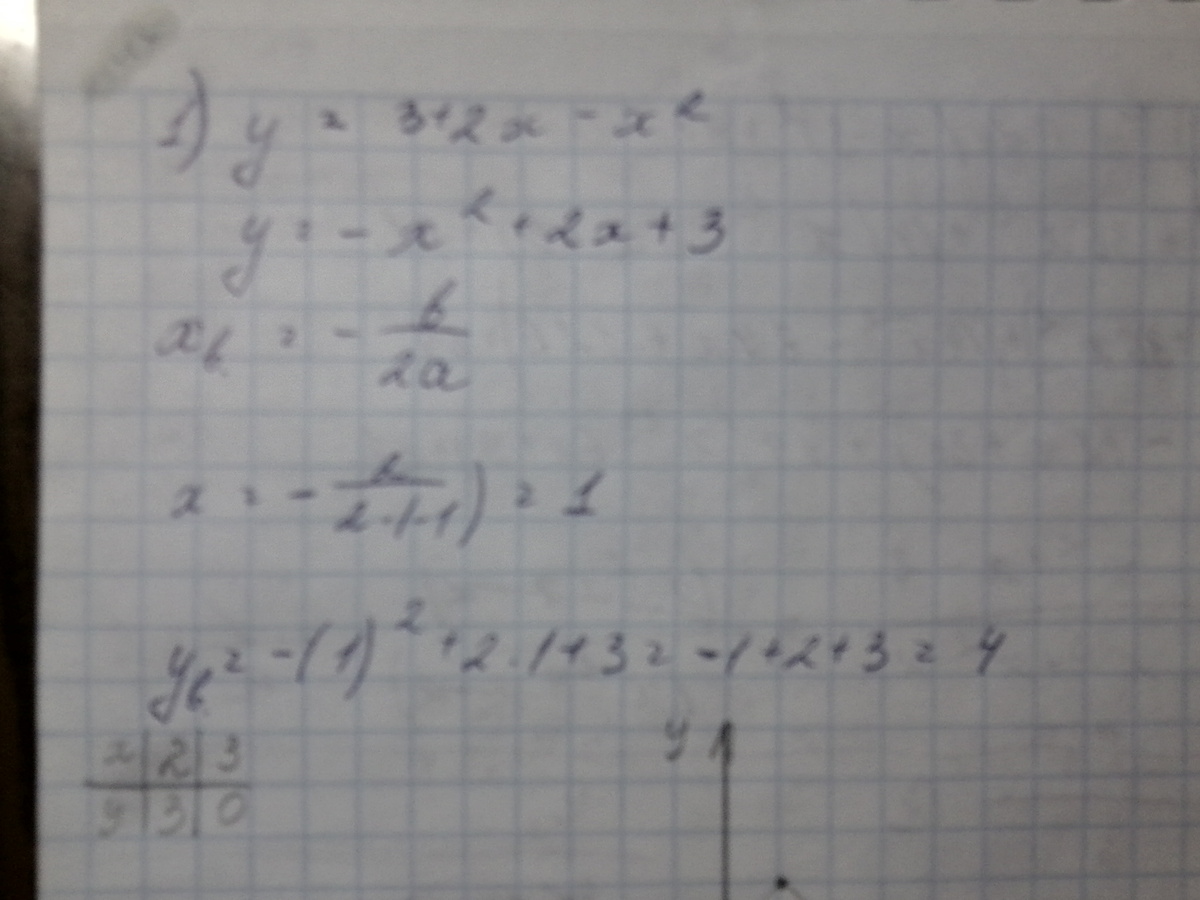 1) y = 3+2x - x²
y = - x² + 2x + 3
xв = - b/2a
x = - 2/2·(-1) = 1
yв = -(1)² + 2·1+3 = -1+2+3 = 4
x | 2 | 3
y | 3 | 0
y